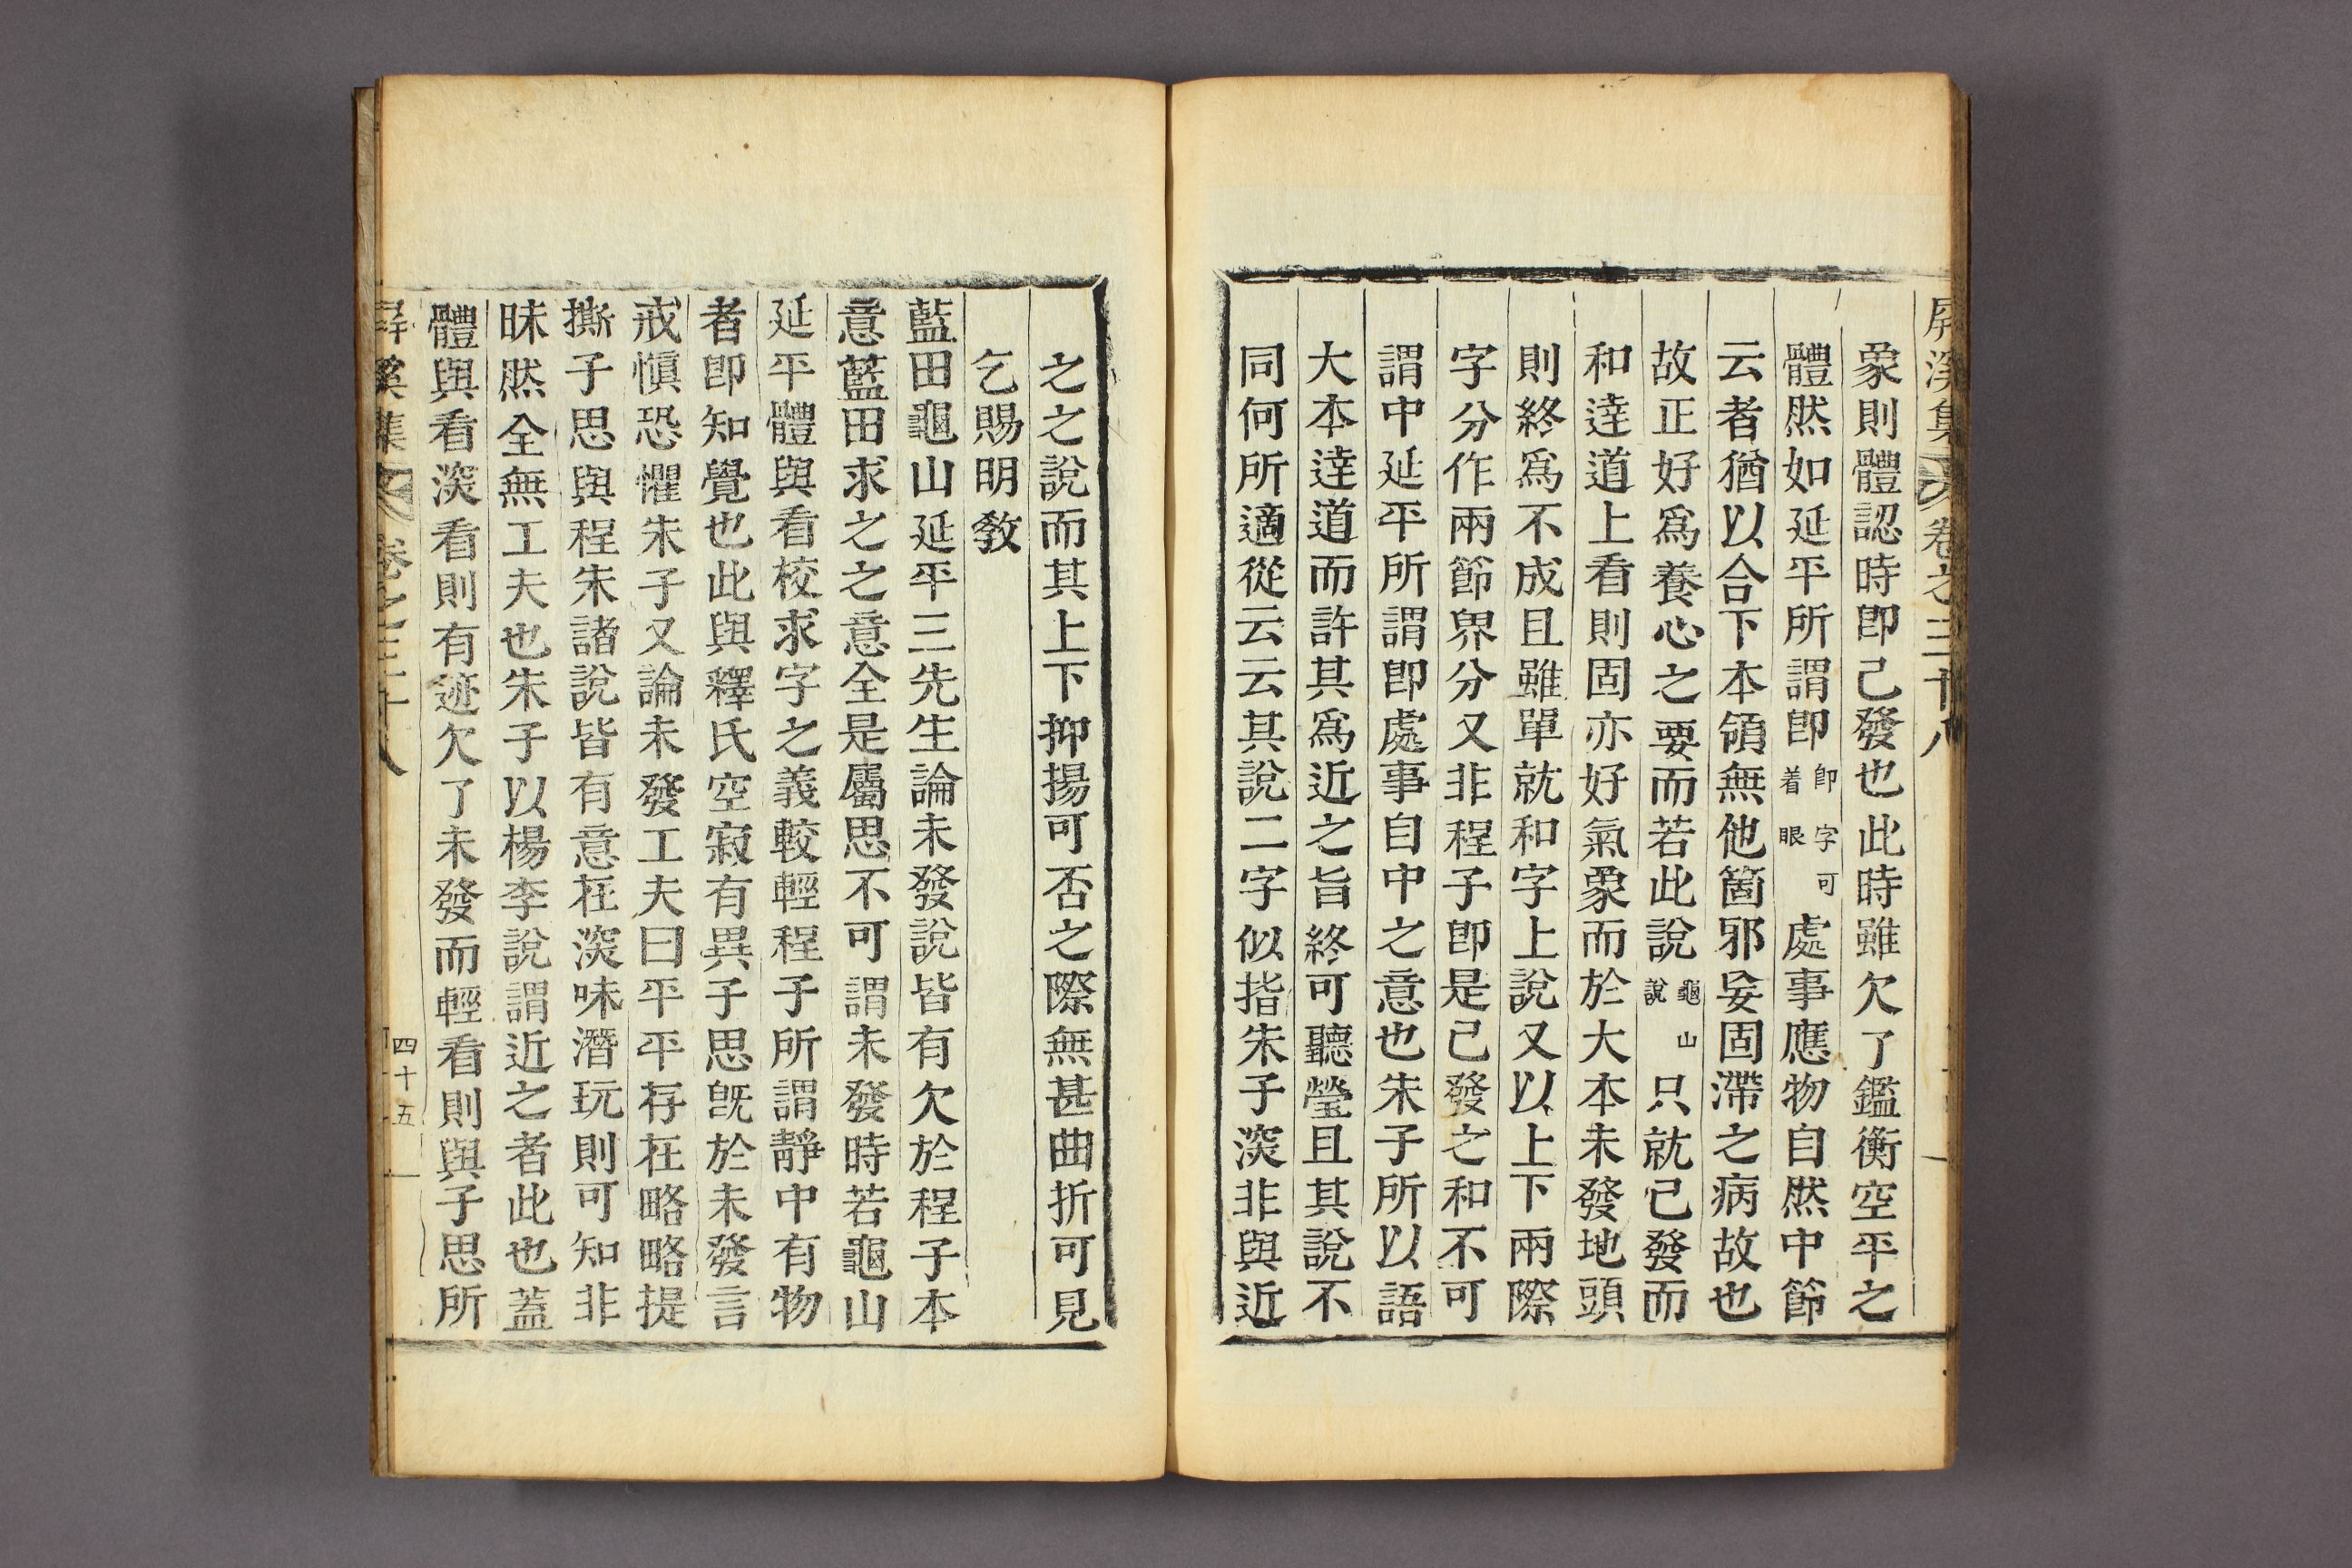 屛溪集 卷之三十八
象則體認時卽已發也此時雖欠了鑑衡空平之
體然如延平所謂卽卽字可着眼處事應物自然中節
云者猶以合下本領無他箇邪妄固滯之病故也
故正好爲養心之要而若此說龜山說只就已發而
和達道上看則固亦好氣象而於大本未發地頭
則終爲不成且雖單就和字上說又以上下兩際
字分作兩節界分又非程子卽是已發之和不可
謂中延平所謂卽處事自中之意也朱子所以語
大本達道而許其爲近之旨終可聽瑩且其說不
同何所適從云云其說二字似指朱子深非與近
之之說而其上下抑揚可否之際無甚曲折可見
乞賜明敎
藍田龜山延平三先生論未發說皆有欠於程子本
意藍田求之之意全是屬思不可謂未發時若龜山
延平體與看校求字之義較輕程子所謂靜中有物
者卽知覺也此與釋氏空寂有異子思旣於未發言
戒愼恐懼朱子又論未發工夫曰平平存在略略提
撕子思與程朱諸說皆有意在深味潛玩則可知非
昧然全無工夫也朱子以楊李說謂近之者此也蓋
體與看深看則有迹欠了未發而輕看則與子思所
屛溪集 卷之三十八 四十五